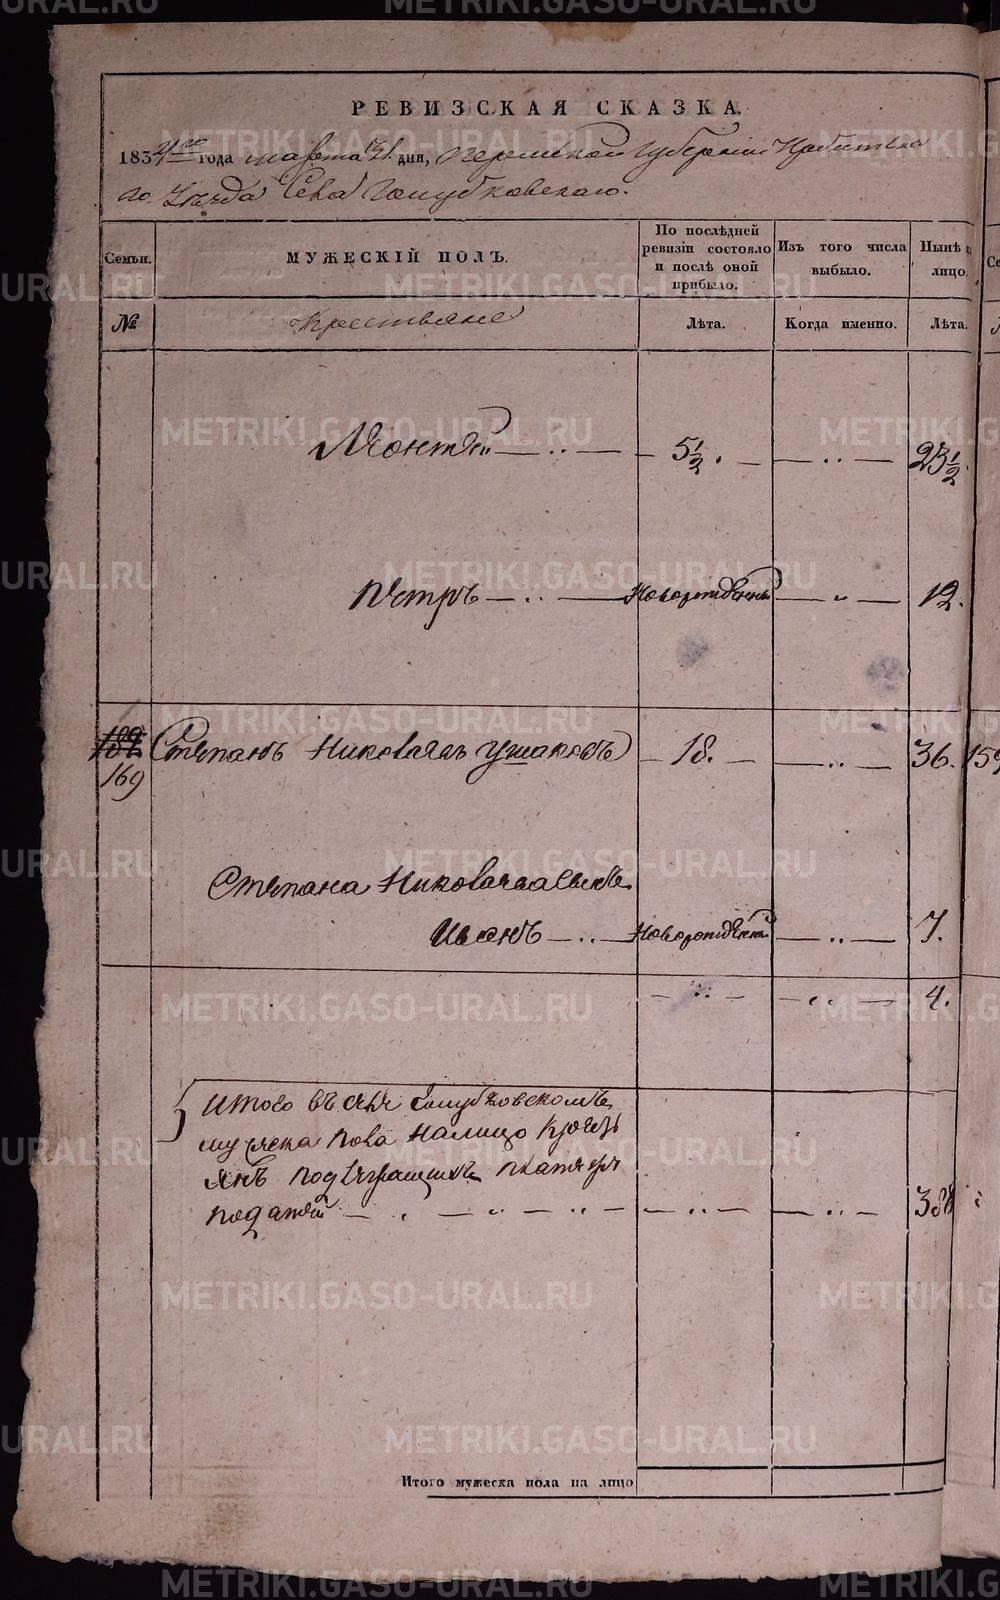 РЕВИЗСКАЯ СКАЗКА.
1834го года марта 31. дня, Пермской Губернiи Ирбитска
го Уѣзда Села Голубковскаго.
Семьи.
МУЖЕСКIЙ ПОЛЪ.
По послѣдней ревизiи состояло и послѣ оной прибыло.
Изъ того числа выбыло.
Нынѣ на лицо.
№
Крестьяне
Лѣта.
Когда именно.
Лѣта.
Монтѣй — „ — 5½. — „ — 23½.
Петръ — „ — Новорожденный — „ — 12.
169 Степанъ Николаевъ Ушаковъ — 18. — „ — 36. 159
Степана Николаева сынъ
Иванъ — „ — Новорожденный — „ — 7.
— „ — — „ — 4.
Итого въ селѣ Голубковскомъ
мужеска пола налицо Крестьянъ
янъ подлѣжащихъ платежу
податей — „ — „ — „ — „ — „ — 388
Итого мужеска пола на лицо
METRIKI.GASO-URAL.RU